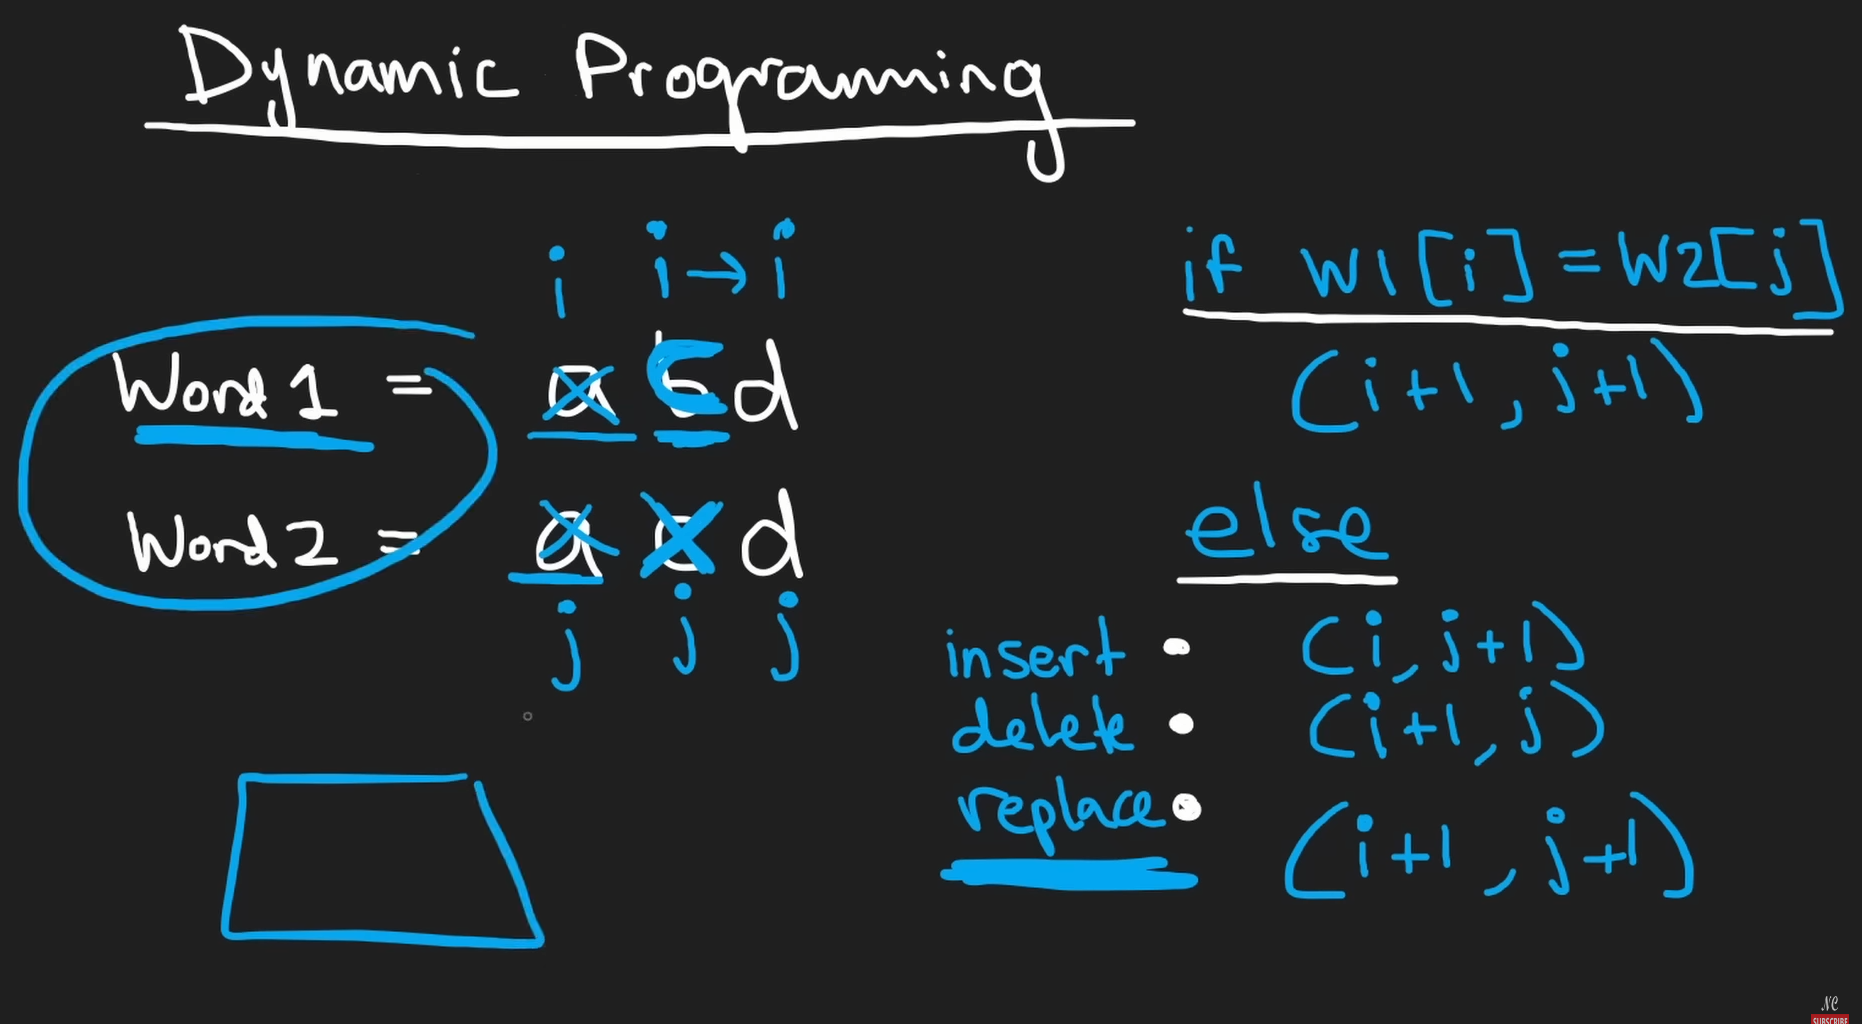 Dynamic Programming
i i → i
Word 1 = a b d
Word 2 = a c d
j j j
if W1[i] = W2[j]
(i+1, j+1)
else
insert • (i, j+1)
delete • (i+1, j)
replace • (i+1, j+1)
NC
SUBSCRIBE